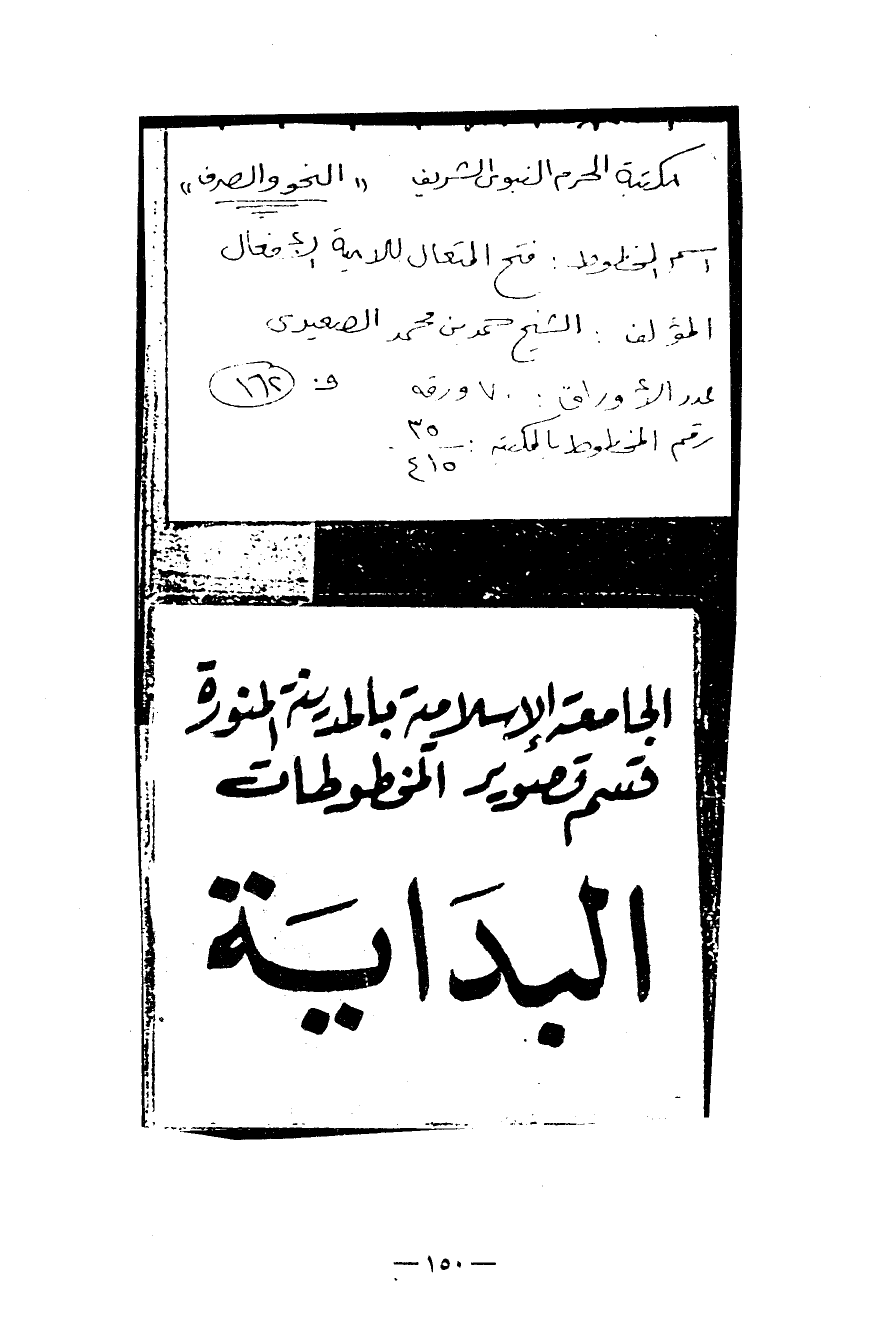 مكتبة الحرم النبوى الشريف « النحو والصرف »
اسم المخطوط : فتح المتعال للامية الأفعال
المؤلف : الشيخ حمد بن محمد الصعيدى
عدد الأوراق : ٧٠ ورقه ف. ١٦٢
رقم المخطوط بالمكتبه : ٣٥
٤١٥
الجامعة الإسلامية بالمدينة المنورة
قسم تصوير المخطوطات
البدَايَة
— ١٥٠ —